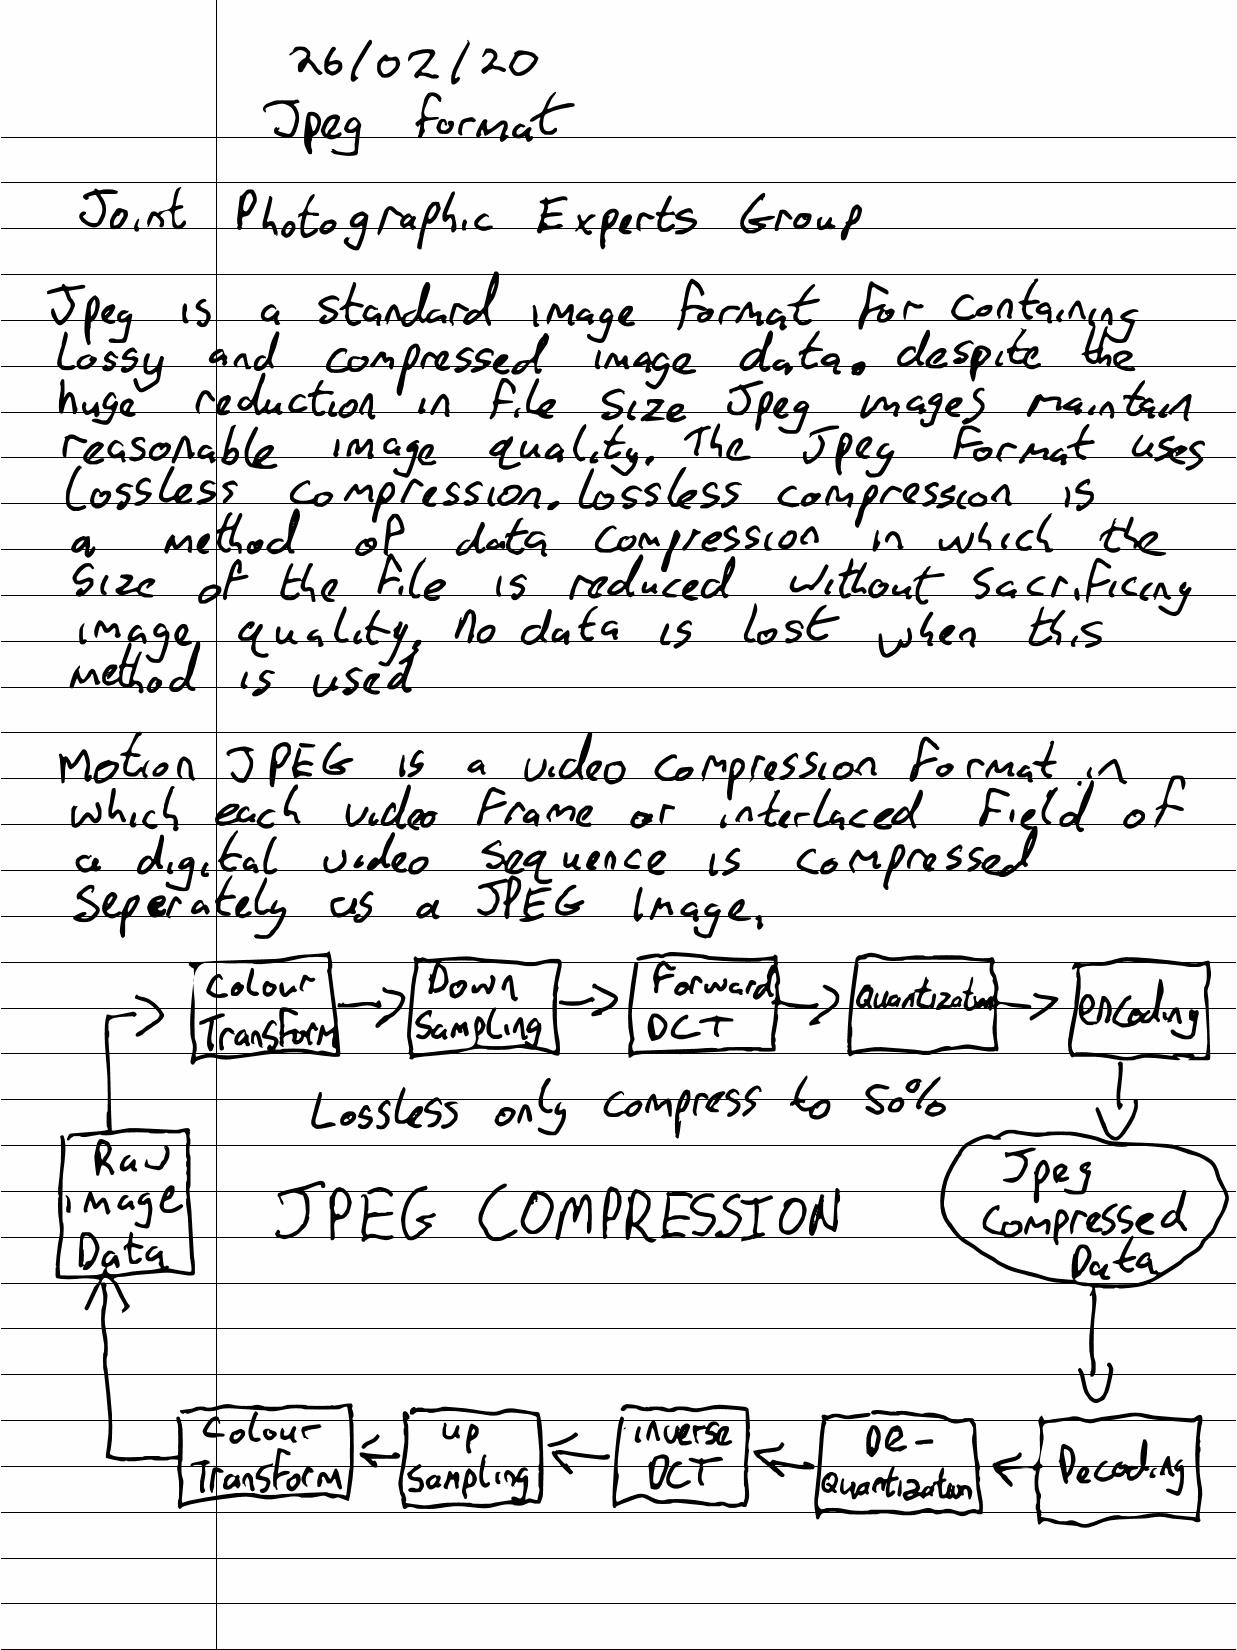 26/02/20
Jpeg format
Joint Photographic Experts Group
Jpeg is a standard image format for containing
lossy and compressed image data. despite the
huge reduction in file size Jpeg images maintain
reasonable image quality. The Jpeg format uses
lossless compression. lossless compression is
a method of data compression in which the
size of the file is reduced without sacrificing
image quality. No data is lost when this
method is used
Motion JPEG is a video compression format in
which each video frame or interlaced field of
a digital video sequence is compressed
seperately as a JPEG image.
Colour
Transform
Down
Sampling
Forward
DCT
Quantization
encoding
Lossless only compress to 50%
Raw
image
Data
JPEG COMPRESSION
Jpeg
compressed
Data
Colour
Transform
up
sampling
inverse
DCT
De-
Quantization
Decoding